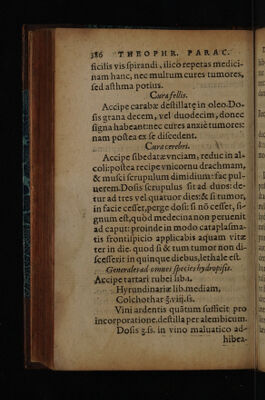 386 THEOPHR. PARAC.
ficilis vis spirandi, ilico repetas medici-
nam hanc, nec multum cures tumores,
sed asthma potius.
Cura fellis.
Accipe carabæ destillatę in oleo. Do-
sis grana decem, vel duodecim, donec
signa habeant: nec cures anxiè tumores:
nam postea ex se discedent.
Cura cerebri.
Accipe sibedatæ vnciam, reduc in al-
coli: postea recipe vnicornu drachmam,
& musci scrupulum dimidium: fac pul-
uerem. Dosis scrupulus sit ad duos: de-
tur ad tres vel quatuor dies: & si tumor,
in facie cesset, perge: dosi: si nõ cesset, si-
gnum est, quòd medicina non peruenit
ad caput: proinde in modo cataplasma-
tis frontispicio applicabis aquam vitæ
ter in die. quod si & tum tumor non di-
scesserit in quinque diebus, lethale est.
Generales ad omnes species hydropisis.
Accipe tartari rubei lib. 1.
Hyrundinariæ lib. mediam,
Colchothar ℥. viij. ß.
Vini ardentis quãtum sufficit pro
incorporatione. destilla per alembicum.
Dosis ʒ. ß. in vino maluatico ad-
hibea-